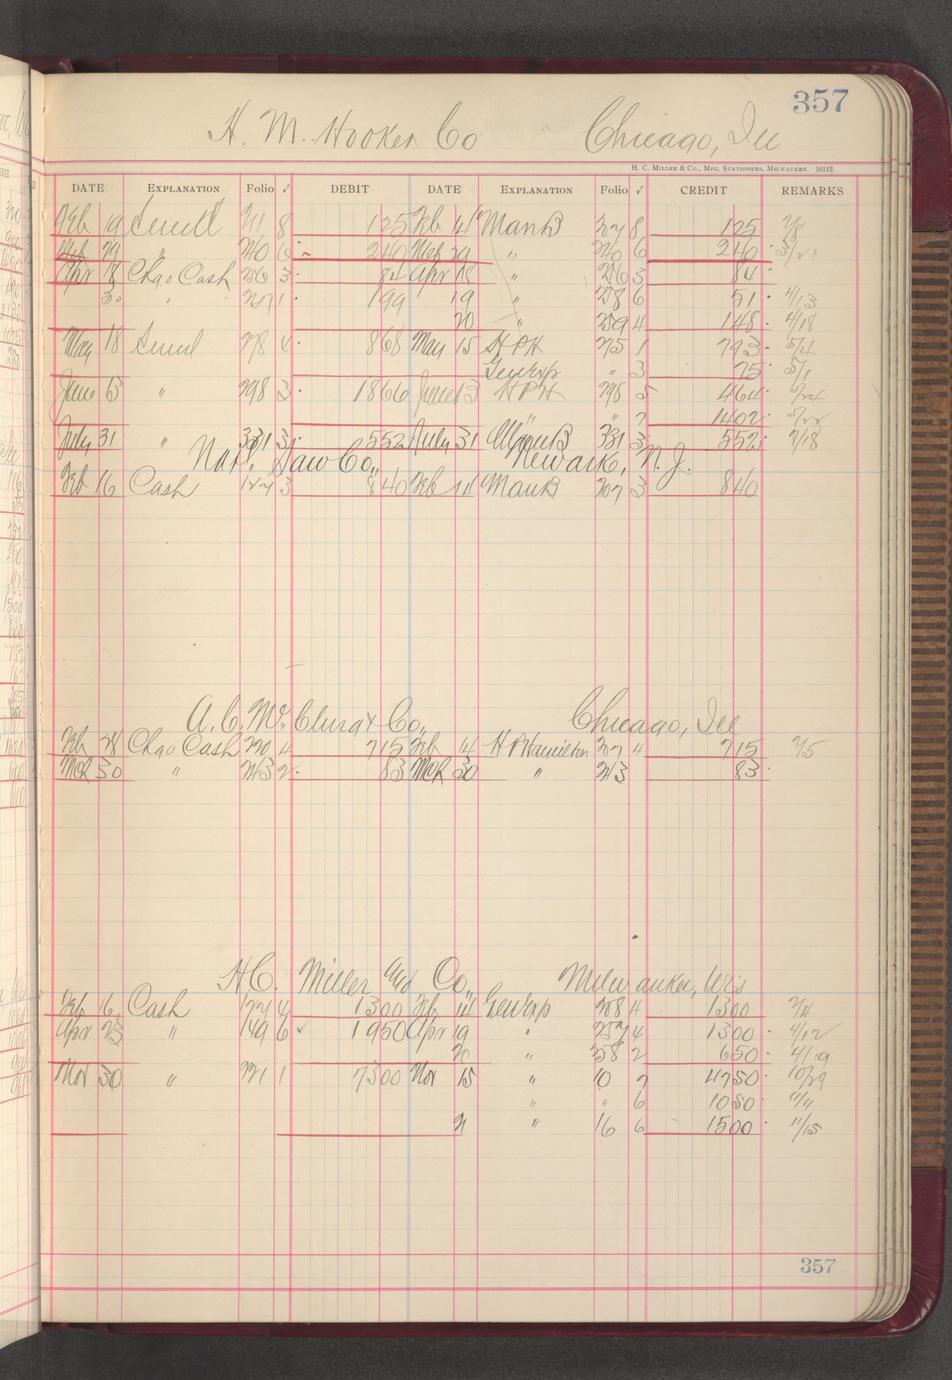 357
H. M. Hooker Co Chicago, Ill
H. C. Miller & Co., Mfg. Stationers, Milwaukee. 16112.
DATE EXPLANATION Folio ✓ DEBIT DATE EXPLANATION Folio ✓ CREDIT REMARKS
Feb 19 8 125 Feb 14 ManB 8 125 2/8
29 " 240 6 240 Mch 29 " 240 6 240
Apr 18 Chgo Cash 256 3 84 Apr 18 " 256 3 84
30 " 267 1 199 19 " 258 6 51 4/13
20 " 259 4 148 4/18
May 18 278 4 868 May 15 HPH 275 1 793 5/4
GenExp " 3 75 5/1
June 13 " 298 3 1866 June 13 HPH 298 5 464
" " 7 1402
July 31 " 331 3 552 July 31 331 3 552 7/18
Nat. Saw Co., Newark, N. J.
Feb 16 Cash 3 840 Feb 14 ManB 207 3 840
A. C. McClurg & Co., Chicago, Ill
Feb 28 Chgo Cash 220 4 715 Feb 14 H P Hamilton 4 715 2/5
Mch 30 " 243 2 83 Mch 30 " 243 83
H. C. Miller Co., Milwaukee, Wis
Feb 16 Cash 4 1300 Feb 14 GenExp 208 4 1300 2/4
Apr 23 " 149 6 ✓ 1950 Apr 19 " 257 4 1300 4/12
20 " 258 2 650 4/19
Nov 30 " 221 1 7300 Nov 15 " 10 7 4750 10/29
" " 6 1050 11/11
21 " 16 6 1500 11/15
357